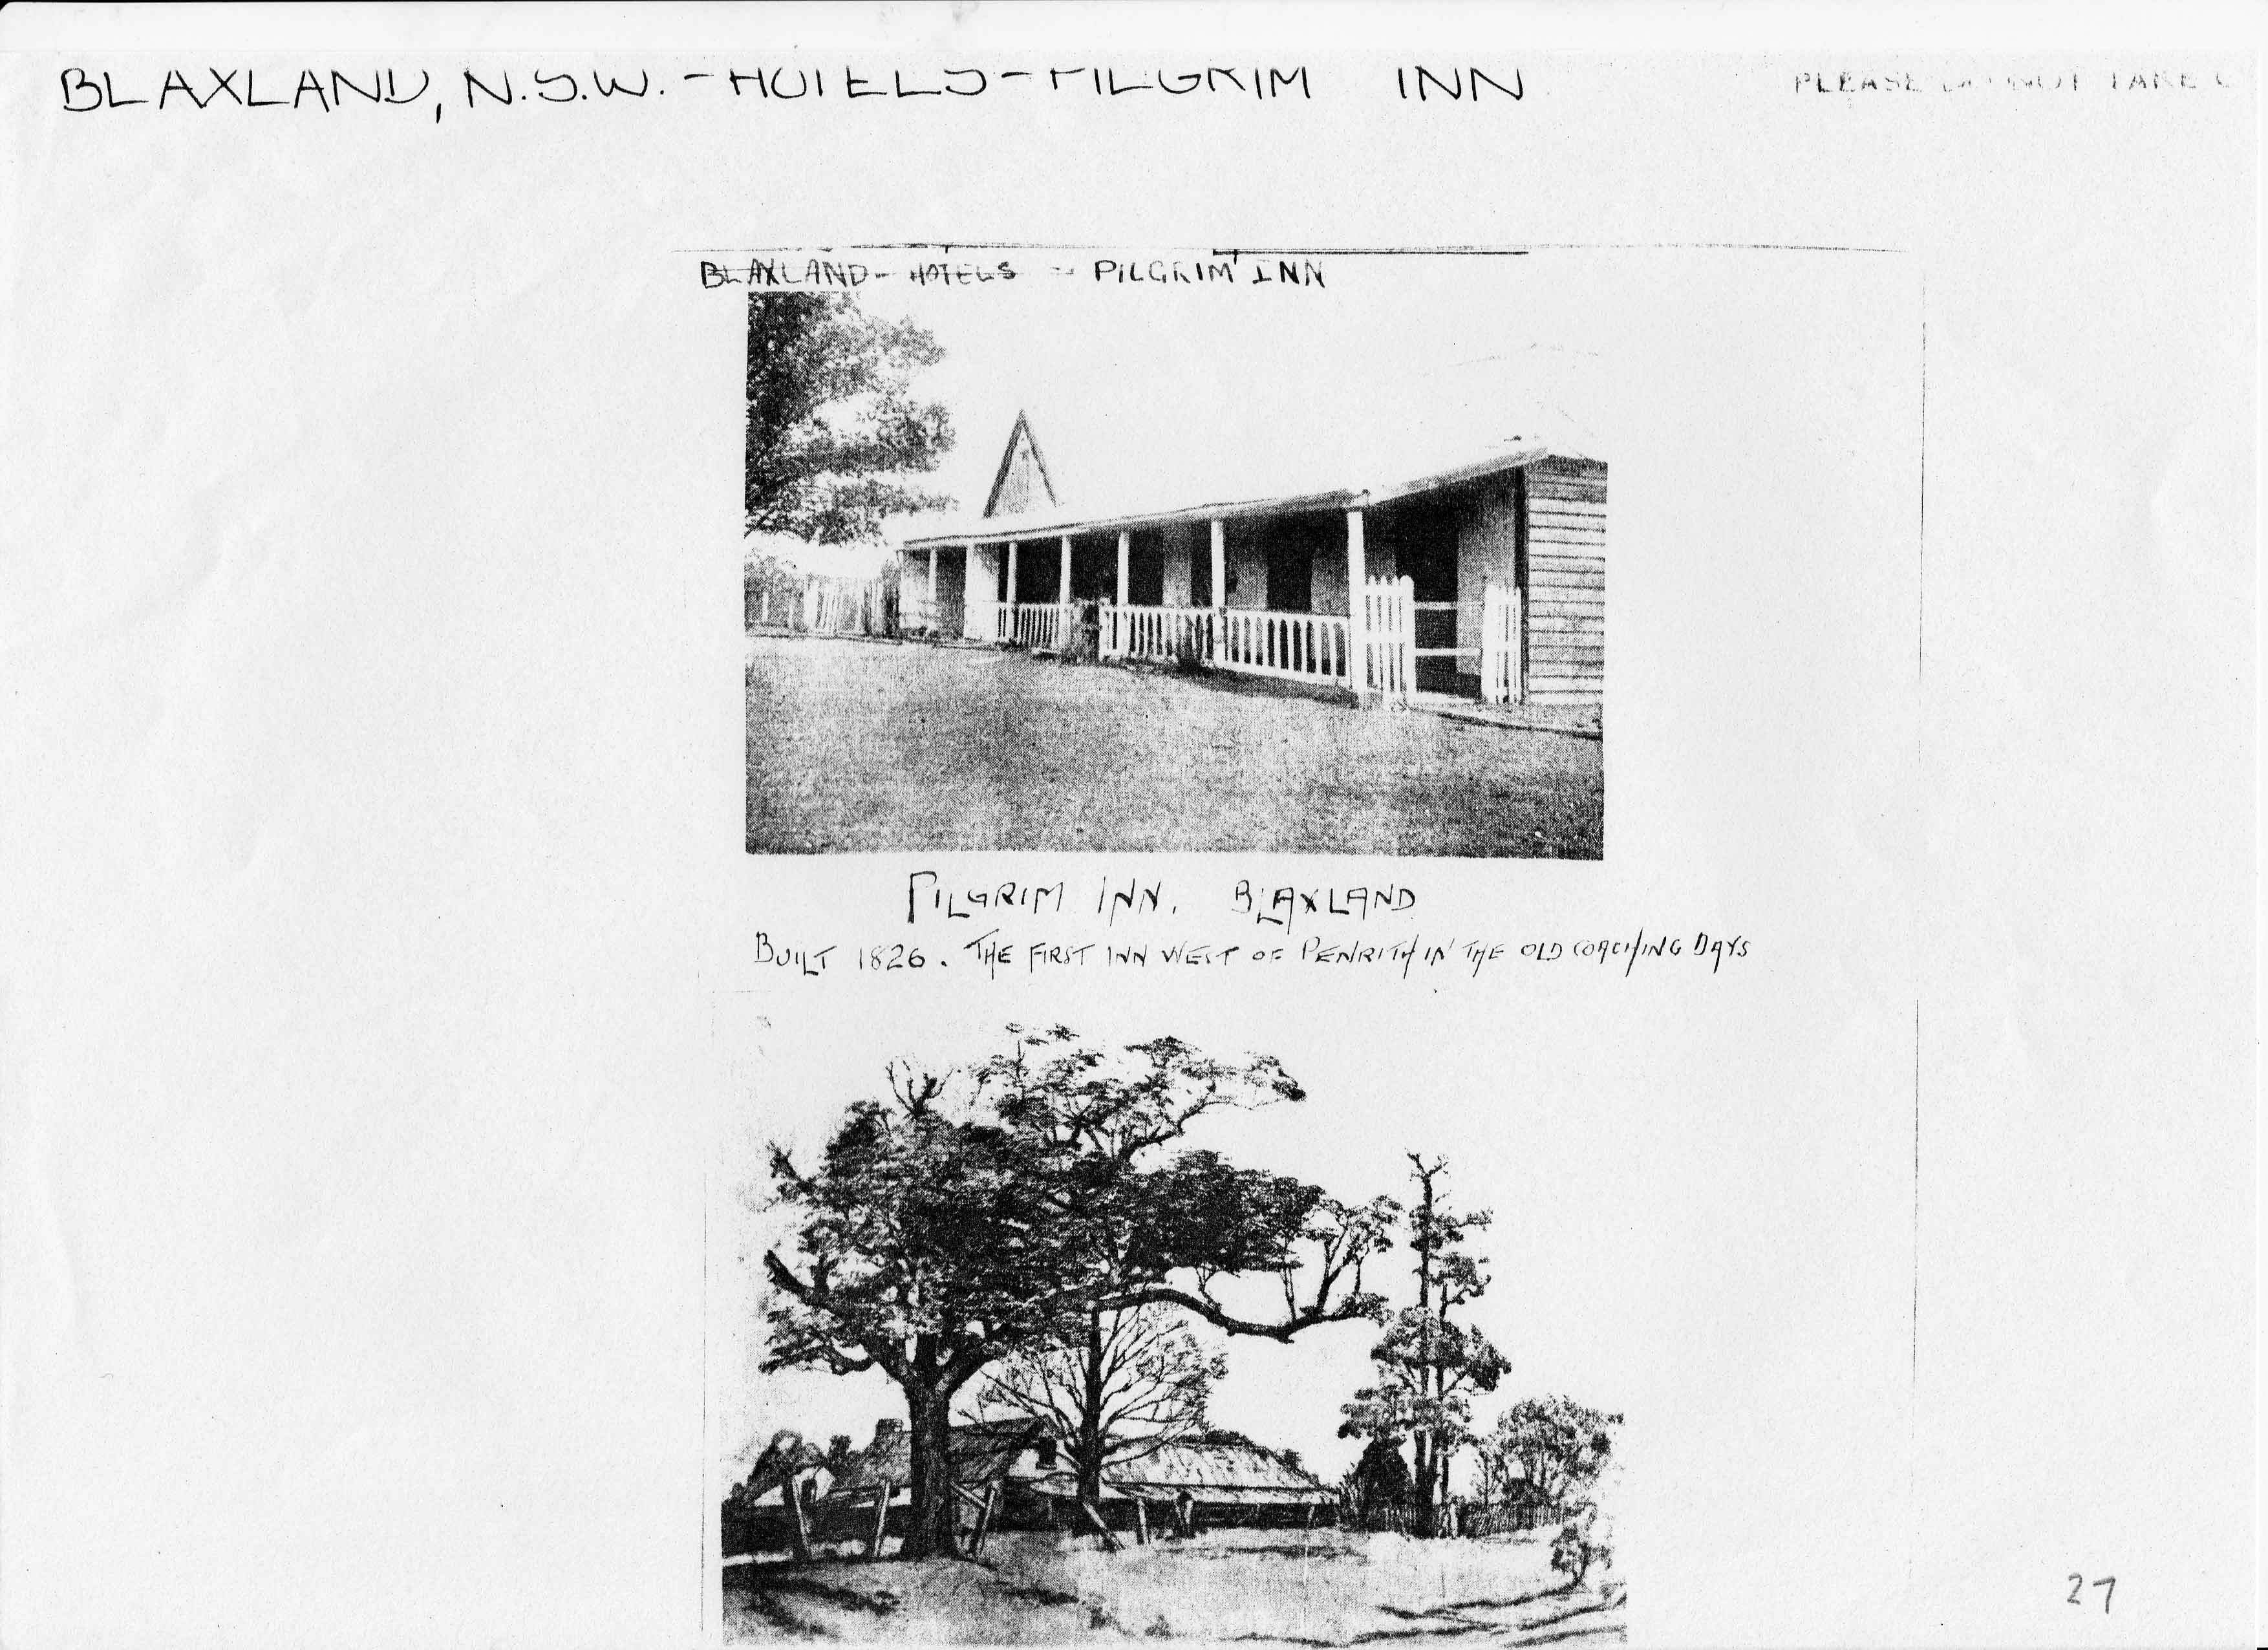 BLAXLAND, N.S.W. - HOTELS - PILGRIM INN
PLEASE DO NOT TAKE
BLAXLAND - HOTELS - PILGRIM INN
PILGRIM INN. BLAXLAND
BUILT 1826. THE FIRST INN WEST OF PENRITH IN THE OLD COACHING DAYS
27